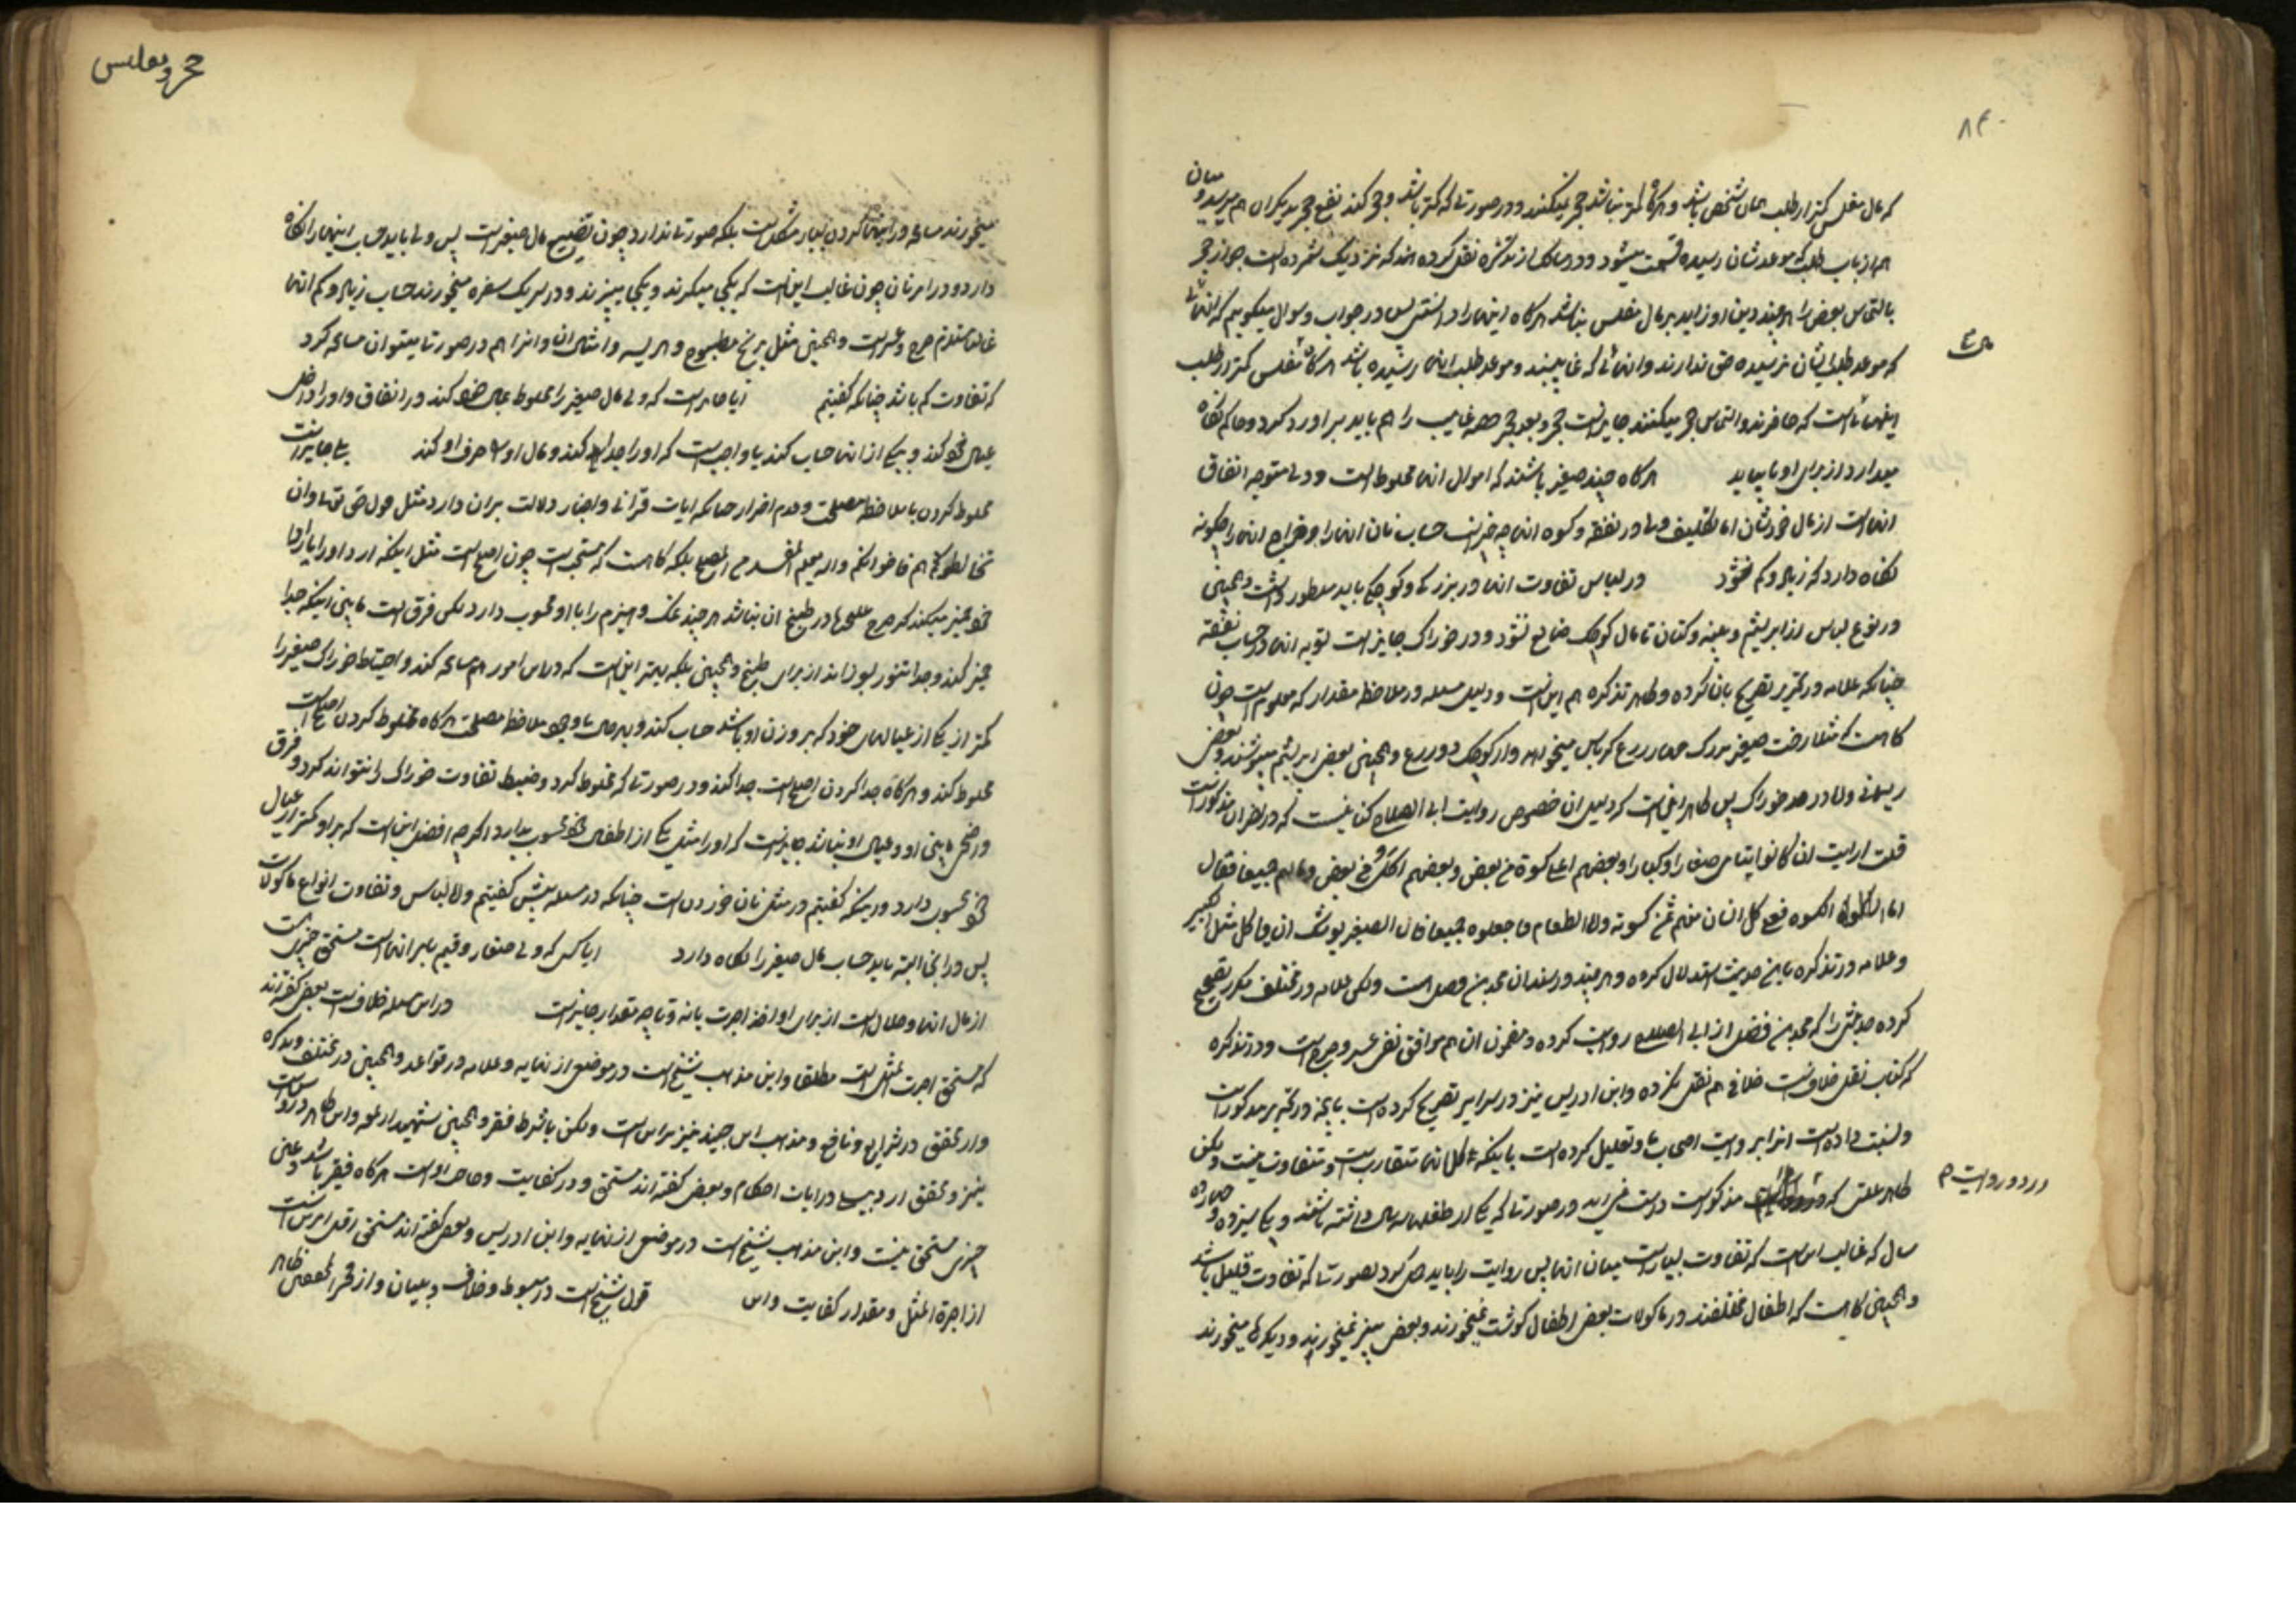 که مال مفلس کمتر از طلب همان شخص باشد و هرگاه کمتر نباشد حجر نمیکنند و در صورتی که کمتر باشد و حجر کند نفع حجر بدیگران هم میرسد و میان
همه ارباب طلب که موعدشان رسیده قسمت میشود و در مسالک از تذکره نقل کرده اند که نزدیک شمرده است جواز حجر
بالتماس بعض را هرچند دین او زاید بر مال مفلس نباشد هرگاه اینها را دانستی پس در جواب سوال میگوییم که آنهائی
که موعد طلب ایشان نرسیده حقی ندارند و آنهائی که غایبند و موعد طلب آنها رسیده باشد هرگاه مفلس کمتر از طلب
اینهائی است که حاضرند و التماس حجر میکنند جایز است حجر و بعد حجر حصه غایب را هم باید برآورد کرد و حاکم نگاه
میدارد از برای او تا بیاید هرگاه چند صغیر باشند که اموال آنها مخلوط است و ولی متوجه انفاق
آنها است از مال خودشان اما تکلیف ولی در نفقه و کسوه آنها چه چیز است حساب نان آنها را و اخراج آنها را چگونه
نگاه دارد که زیاد و کم نشود در لباس تفاوت آنها در بزرگی و کوچکی باید منظور داشت و همچنین
در نوع لباس از ابریشم و پنبه و کتان تا مال کوچک ضایع نشود و در خوراک جایز است تسویه آنها در حساب نفقه
چنانکه علامه در تحریر تصریح بان کرده و ظاهر تذکره هم این است و دلیل مسئله در ملاحظه مقدار که معلوم است چون
گاه است که مثلا رخت صغیر بزرگ چهار ذرع کرباس میخواهد و از کوچک دو ذرع و همچنین بعض ابریشم میپوشند و بعض
ریسمانی و اما در عدد خوراک پس ظاهر این است که دلیل آن خصوص روایت ابی الصباح کنانی است که در نظر آن مذکور است
قلت ارایت ان کانوا یتامی صغارا و کبارا و بعضهم اعلی کسوة من بعض و بعضهم آکل من بعض و مالهم جمیعا فقال
اما الکسوه فعلی کل انسان منهم ثمن کسوته و اما الطعام فاجعلوه جمیعا فان الصغیر یوشک ان یاکل مثل الکبیر
و علامه در تذکره باین حدیث استدلال کرده و هرچند در سند آن محمد بن فضیل است ولکن علامه در مختلف مکرر تصحیح
کرده حدیثی را که محمد بن فضیل از ابی الصباح روایت کرده و مضمون آن هم موافق نفی عسر و حرج است و در تذکره
که کتاب نقل خلافست خلافی هم نقل نکرده و ابن ادریس نیز در سرایر تصریح کرده است بآنچه در تحریر مذکور است
و نسبت داده است آنرا بروایت اصحاب ما و تعلیل کرده است باینکه اکل آنها متقارب است و متفاوت نیست ولکن
ظاهر علتی که در روایت مذکور است در صورتی که یکی از طفلها سه سال داشته باشد و یکی سیزده و چهارده
سال که غالب این است که تفاوت بسیار است میان آنها پس روایت را باید حمل کرد بصورتی که تفاوت قلیل باشد
و همچنین گاه است که اطفال مختلفند در ماکولات بعض اطفال گوشت نمیخورند و بعض پنیر نمیخورند و دیگرها میخورند
در دو روایت م
۸۴
حجر و تفلیس
میخورند مسامحه در اینها کردن بسیار مشکل است بلکه صورتی ندارد چون تضییع مال صغیر است پس ولی باید حساب اینها را نگاه
دارد و در امر نان چون غالب این است که یکجا میگیرند و یکجا میپزند و در سر یک سفره میخورند حساب زیاد و کم آنها
غالبا مستلزم حرج و عسر است و همچنین مثل برنج مطبوخ و هریسه و امثال آن و آنرا هم در صورتی میتوان مسامحه کرد
که تفاوت کم باشد چنانکه گفتیم آیا جایز است که ولی مال صغیر را مخلوط بمال خود کند در انفاق و او را داخل
عیال خود کند و یکی از آنها حساب کند یا واجب است که او را جدا کند و مال او را صرف او کند بلی جایز است
مخلوط کردن با ملاحظه مصلحت و عدم اضرار چنانکه آیات قرآنی و اخبار دلالت بر آن دارد مثل قول حق تعالی و ان
تخالطوهم فاخوانکم والله یعلم المفسد من المصلح بلکه گاه است که مستحب است چون اصلح است مثل اینکه آرد او را با آرد
خود خمیر میکند که خرج علیحده در طبخ آن نباشد هرچند نمک و هیزم را با او محسوب دارد لکن فرق است مابین اینکه جدا
خمیر کند و جدا تنور بسوزاند از برای طبخ و همچنین بلکه بهتر این است که در این امور هم مسامحه کند و احتیاطا خوراک صغیر را
کمتر از یکی از عیالهای خود که بر وزن او باشد حساب کند ملاحظه مصلحت هرگاه مخلوط کردن اصلح است
مخلوط کند و هرگاه جدا کردن اصلح است جدا کند و در صورتی که مخلوط کرد و ضبط تفاوت خوراک را نتواند کرد و فرق
واضحی مابین او و عیال او نباشد جایز است که او را مثل یکی از اطفال خود محسوب بدارد اگرچه افضل این است که بر او کمتر از عیال
خود محسوب دارد و اینکه گفتیم در مثل نان خوردن است چنانکه در مسئله پیش گفتیم و اما لباس و تفاوت انواع ماکولات
پس در آنجا البته باید حساب مال صغیر را نگاه دارد ایا کسی که ولی صغار و قیم بامر آنها است مستحق چیزی است
از مال آنها و حلال است از برای او اخذ اجرت یا نه و تا چه مقدار جایز است در این مسئله خلاف است بعض گفته‌اند
که مستحق اجرت المثل است مطلقا و این مذهب شیخ است در موضعی از نهایه و علامه در قواعد و همچنین در مختلف و تذکره
و از محقق در شرایع و نافع و مذهب ابن جنید نیز این است ولکن باشرط فقر و همچنین شهید در لمعه
نیز و محقق اردبیلی در آیات احکام و بعض گفته‌اند مستحق قدر کفایت هرگاه فقیر باشد و غنی
چیزی مستحق نیست و این مذهب شیخ است در موضعی از نهایه و ابن ادریس و بعض گفته‌اند مستحق اقل امرین است
از اجرة المثل و مقدار کفایت و این قول شیخ است در مبسوط و خلاف و تبیان و از فخر المحققین ظاهر